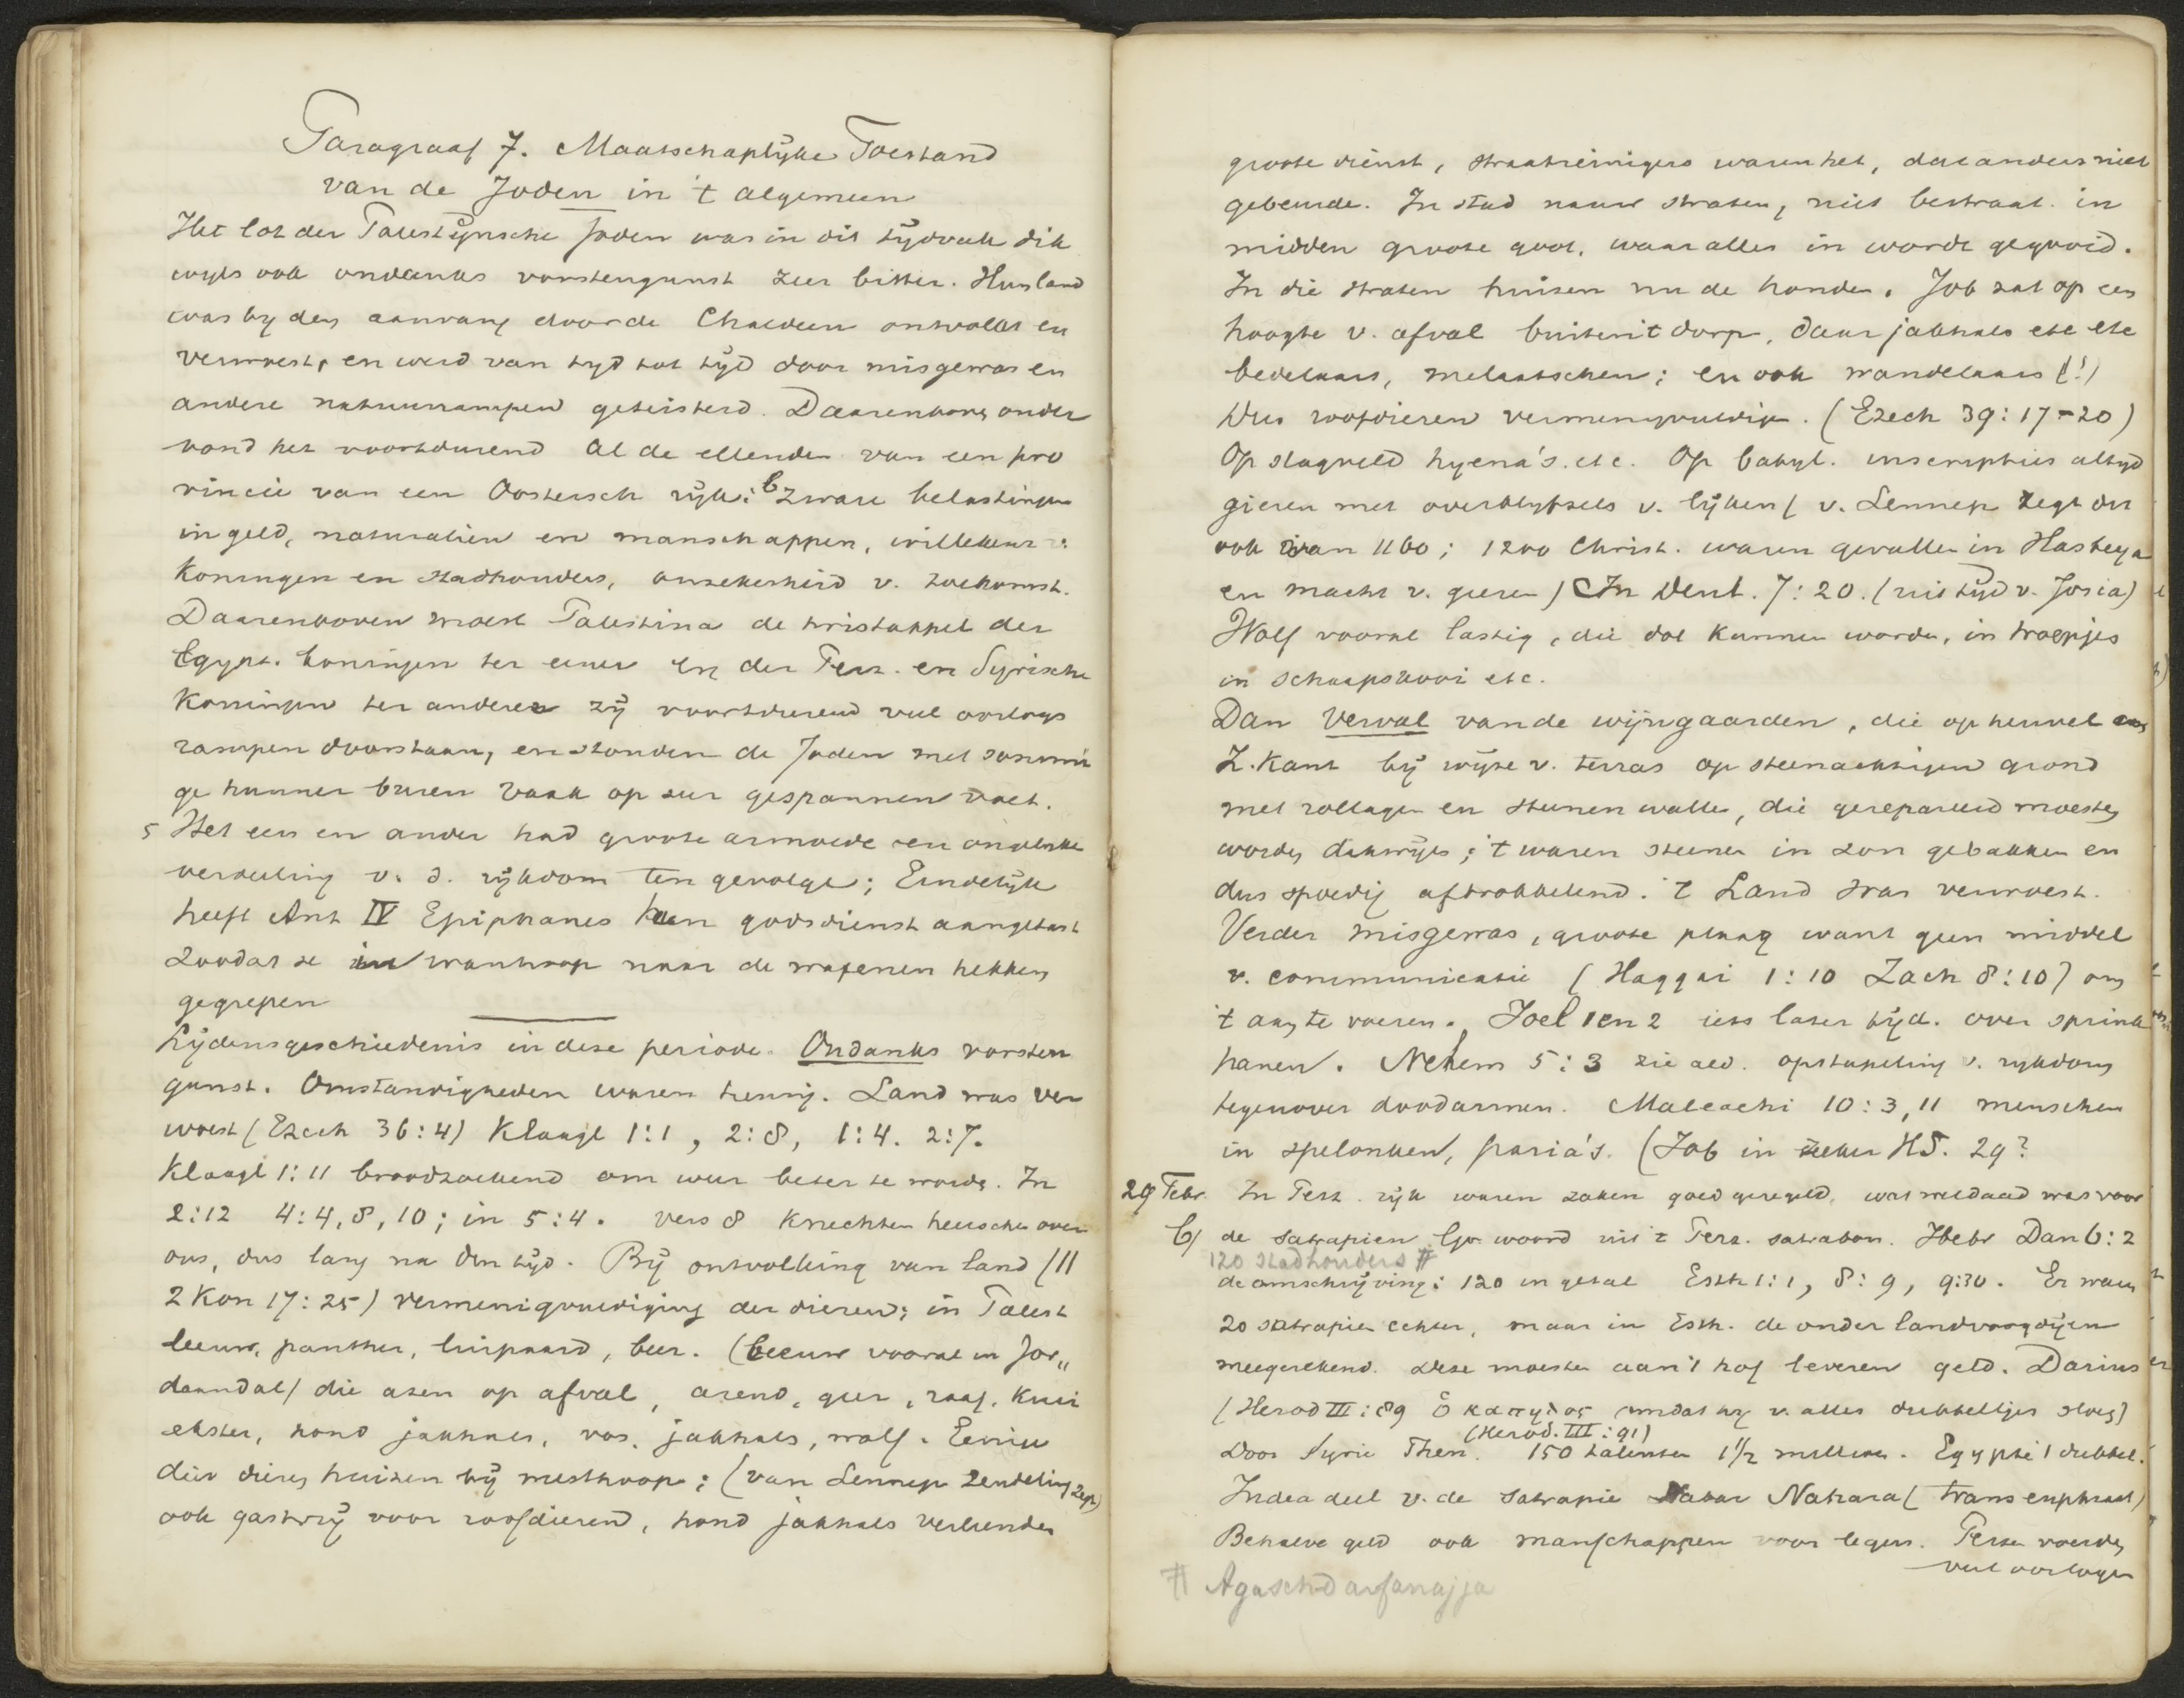 Paragraaf 7. Maatschaplijke Toestand
van de Joden in 't algemeen
Het lot der Palestijnsche Joden was in dit tijdvak dik
wijls ook ondanks vorstengunst zeer bitter. Hun land
was bij den aanvang door de Chaldeen ontvolkt en
verwoest, en werd van tijd tot tijd door misgewas en
andere natuurrampen geteisterd. Daarenboven onder
vond het voortdurend al de ellenden van een pro
vincie van een Oostersch rijk: b zware belastingen
in geld, naturalien en manschappen, willekeur v.
Koningen en stadhouders, onzekerheid v. toekomst.
Daarenboven moest Palestina de twistappel der
Egypt. koningen ter eener en der Perz. en Syrische
Koningen ter anderer zij voortdurend veel oorlogs
rampen doorstaan, en stonden de Joden met sommi
ge hunner buren vaak op zeer gespannen voet.
5 Het een en ander had groote armoede en ongelijke
verdeeling v. d. rijkdom ten gevolge; Eindelijk
heeft Ant IV Epiphanes hun godsdienst aangetast
zoodat ze in wanhoop naar de wapenen hebben
gegrepen
Lijdensgeschiedenis in deze periode. Ondanks vorsten
gunst. Omstandigheden waren treurig. Land was ver
woest (Ezech 36:4) Klaagl 1:1, 2:8, 1:4. 2:7.
Klaagl 1:11 broodzoekend om weer beter te worden. In
2:12 4:4, 8, 10; in 5:4. vers 8 Knechten heerschen over
ons, dus lang na dien tijd. Bij ontvolking van land (//
2 Kon 17:25) vermenigvuldiging der dieren; in Palest
leeuw, panther, luipaard, beer. (leeuw vooral in Jor„
daandal) die azen op afval, arend, gier, raaf, kraai
ekster, hond jakhals, vos, jakhals, wolf. Eenige
dier dieren huizen bij mesthoop: (van Lennep Zendeling zegt)
ook gastvrij voor roofdieren, hond jakhals verleenden
groote dienst, straatreinigers waren het, dat anders niet
gebeurde. In stad nauwe straten, niet bestraat. in
midden groote goot, waar alles in wordt gegooid.
In die straten huizen nu de honden. Job zat op een
hoogte v. afval buiten 't dorp, daar jakhals etc etc
bedelaars, melaatschen; en ook wandelaars (!)
Dus roofdieren vermenigvuldigen. (Ezech 39:17-20)
Op slagveld hyena's. etc. Op babyl. inscripties altijd
gieren met overblijfsels v. lijken (v. Lennep zegt dit
ook van 1160; 1200 Christ. waren gevallen in Hasbeya
en macht v. gieren) In Deut. 7:20. (uit tijd v. Josia)
Wolf vooral lastig, die dol kunnen worden, in troepjes
in schaapskooi etc.
Dan verval van de wijngaarden, die op heuvel aan
Z. Kant bij wijze v. terras op steenachtigen grond
met rollagen en steenen wallen, die gerepareerd moesten
worden dikwijls; 't waren steenen in zon gebakken en
dus spoedig afbrokkelend. 't Land was verwoest.
Verder misgewas, groote plaag want geen middel
v. communicatie (Haggai 1:10 Zach 8:10) om
't aan te voeren. Joel 1 en 2 iets later tijd. over sprink
hanen. Nehem 5:3 zie ald. opstapeling v. rijkdom
tegenover doodarmen. Maleachi 10:3, 11 menschen
in spelonken, paria's. (Job in zeker HS. 29?
29 Febr. In Perz. rijk waren zaken goed geregeld, wat weldaad was voor
b) de satrapien Gr. woord uit 't Perz. satrabon. Hebr Dan 6:2
120 stadhouders #
de omschrijving: 120 in getal Esth 1:1, 8:9, 9:30. Er waren
20 satrapien echter, maar in Esth. de onder landvoogdijen
meegerekend. Deze moesten aan 't hof leveren geld. Darius
(Herod III:89 ὁ καπηλος omdat hij v. alles dubbeltjes sloeg)
(Herod. III:91)
Door Syrie Phen. 150 talenten 1 1/2 millioen. Egypte 't dubbel.
Judea deel v. de Satrapie Abar Nahara (trans euphraat)
Behalve geld ook manschappen voor legers. Perzen voerden
veel oorlogen
# Agaschdarfanajja